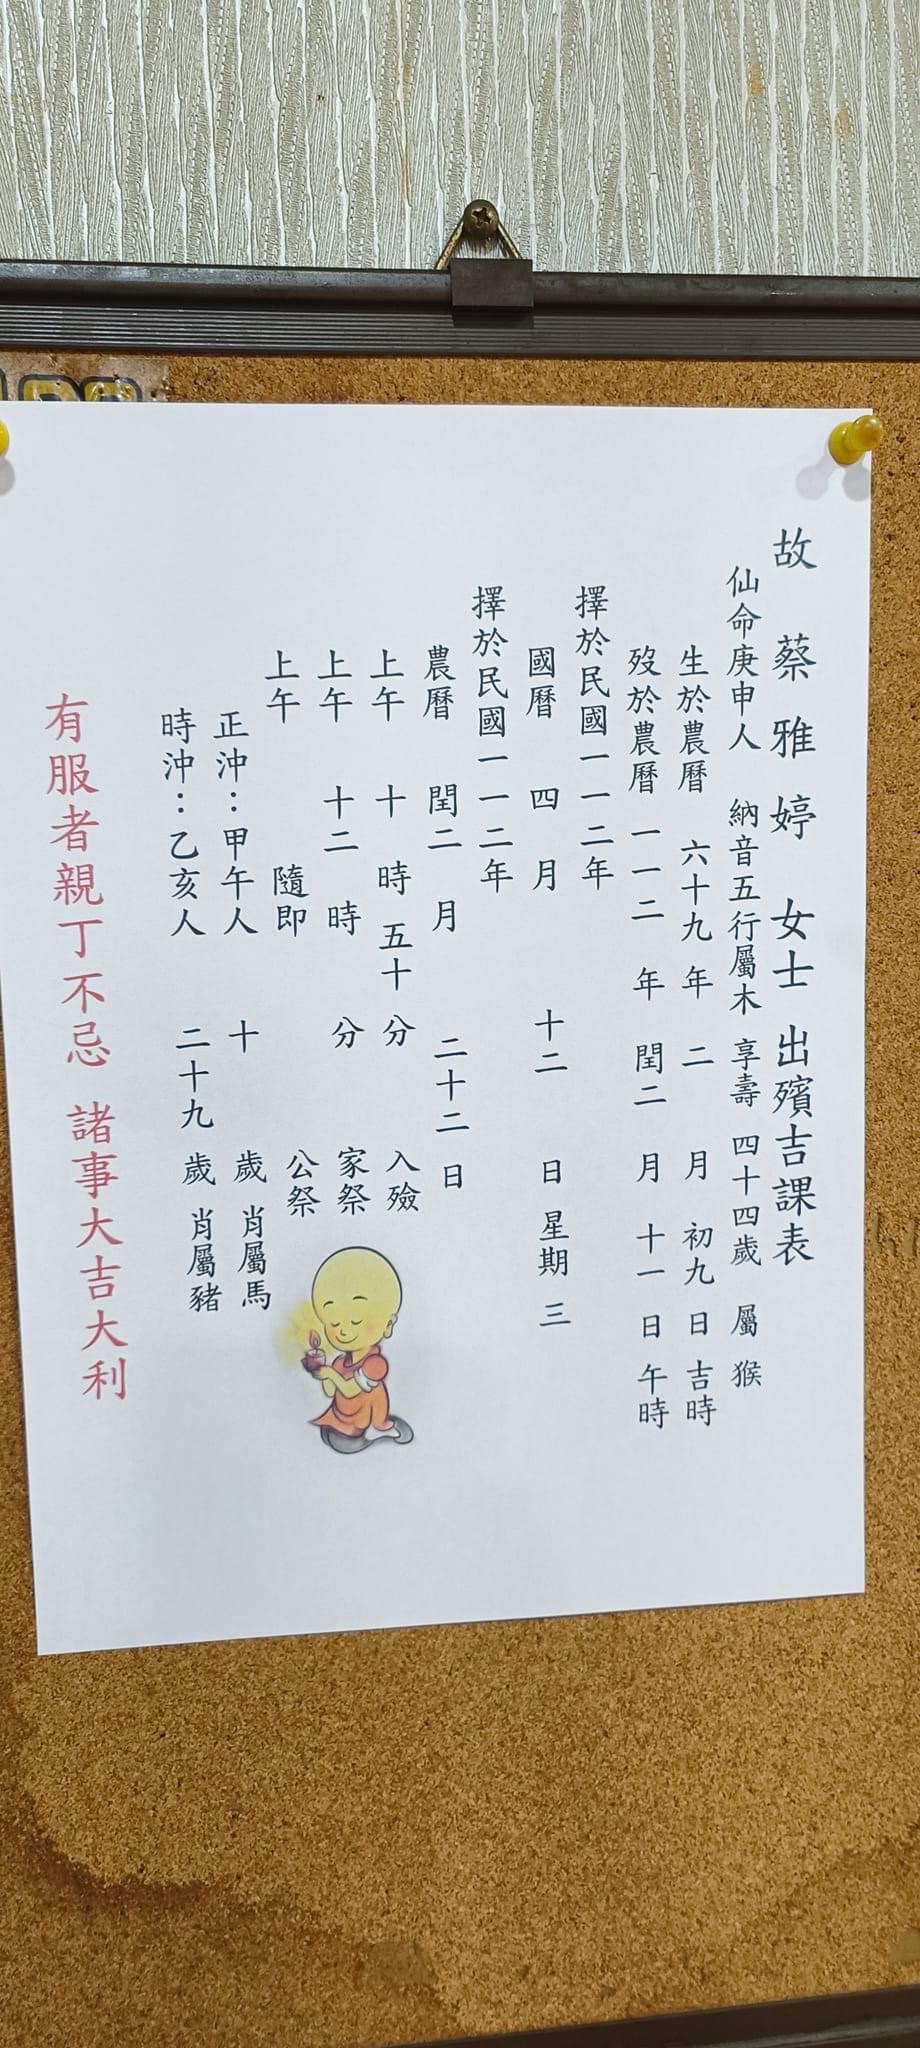 故 蔡雅婷 女士 出殯吉課表
仙命庚申人 納音五行屬木 享壽 四十四歲 屬 猴
生於農曆 六十九 年 二 月 初九 日 吉時
歿於農曆 一一二 年 閏二 月 十一 日 午時
擇於民國一一二年
國曆 四 月 十二 日 星期 三
擇於民國一一二年
農曆 閏二 月 二十二 日
上午 十 時 五十 分 入殮
上午 十二 時 分 家祭
上午 隨即 公祭
正沖：甲午人 十 歲 肖屬馬
時沖：乙亥人 二十九 歲 肖屬豬
有服者親丁不忌 諸事大吉大利